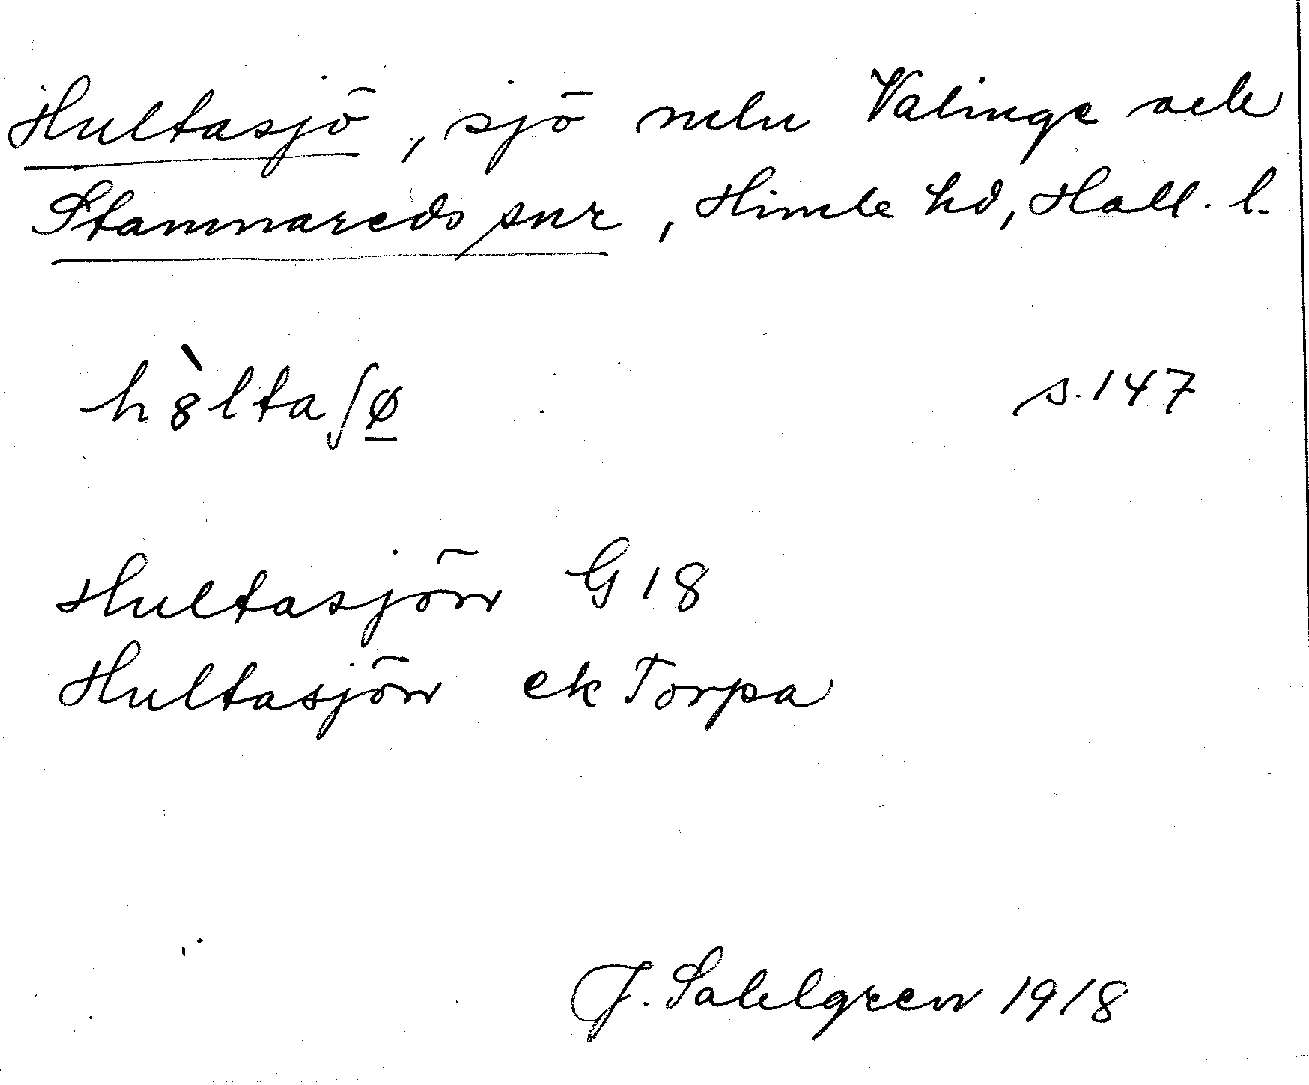 Hultasjö, sjö meln Valinge och
Stamnareds snr, Himle hd, Hall. l.
hȣ̀lta∫ø s. 147
Hultasjön G 18
Hultasjön ek Torpa
J. Sahlgren 1918